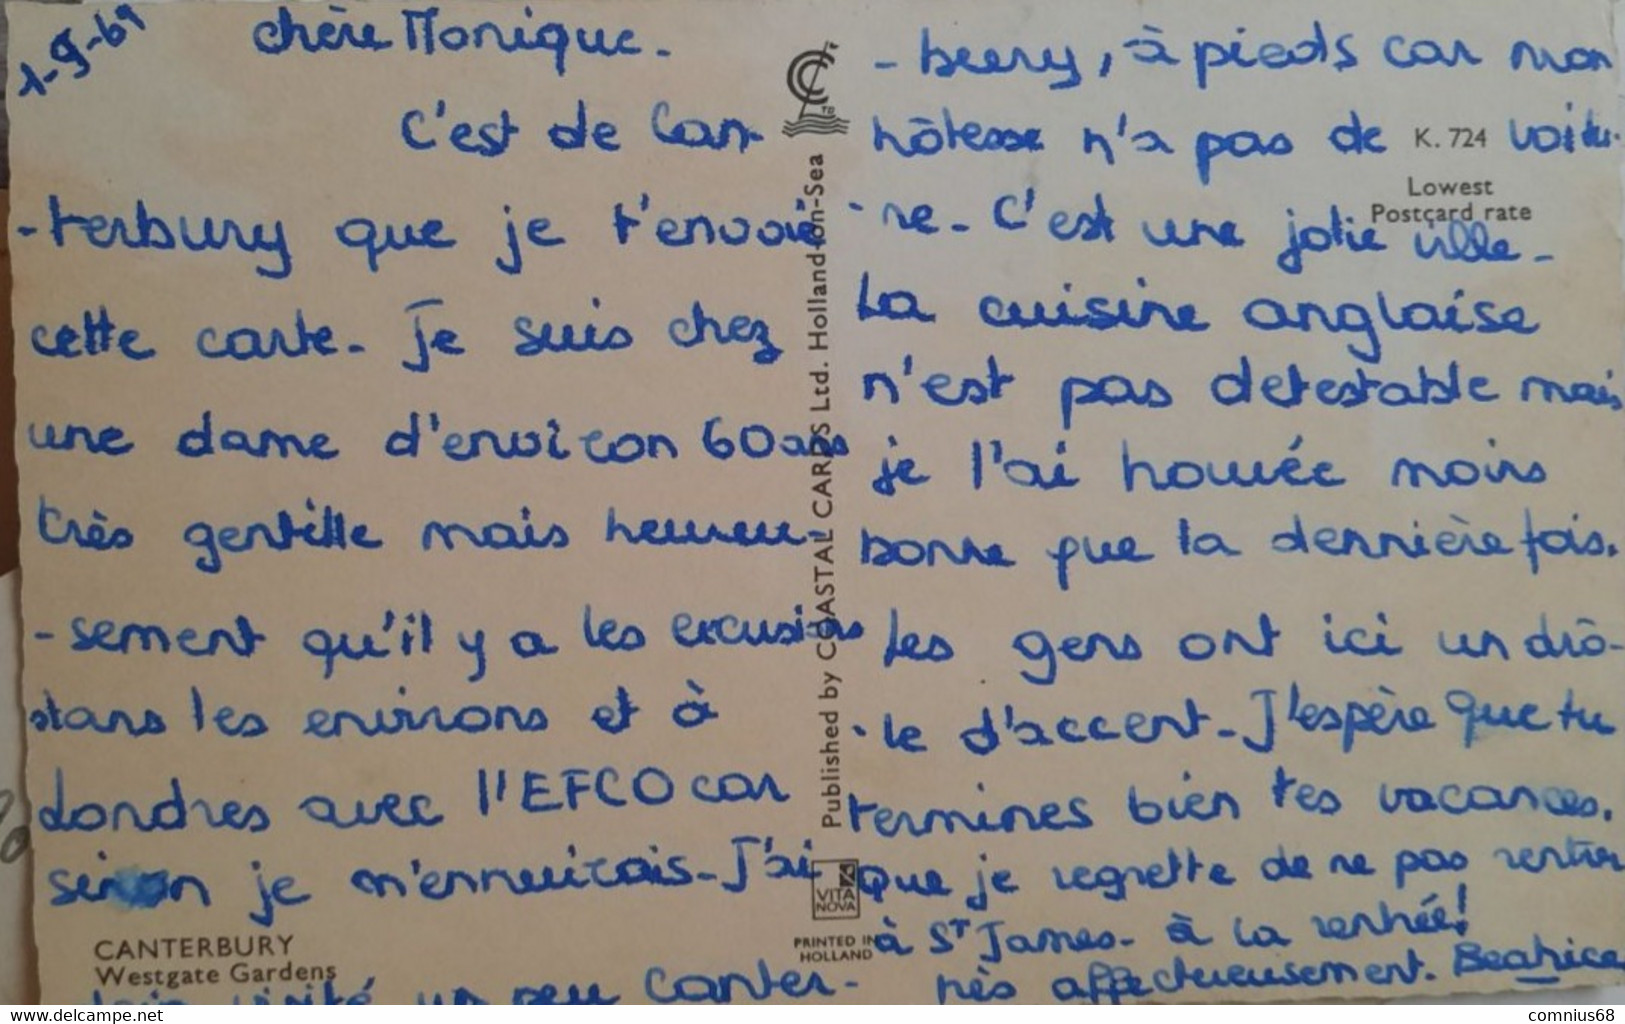 1-9-69
chère Monique.
C'est de Can-
-terbury que je t'envoie
cette carte. Je suis chez
une dame d'environ 60 ans
très gentille mais heureu-
-sement qu'il y a les excusions
dans les environs et à
Londres avec l'EFCO car
sinon je m'ennuierais. J'ai
visité un peu Canter-
-beery, à pieds car mon
hôtesse n'a pas de voitu-
-re. C'est une jolie ville.
La cuisine anglaise
n'est pas detestable mais
je l'ai trouvée moins
bonne que la dernnière fois.
Les gens ont ici un drô-
-le d'accent. J'espère que tu
termines bien tes vacances.
que je regrette de ne pas rentrer
à St James. à la rentrée!
très affectueusement. Beatrice
CANTERBURY
Westgate Gardens
Published by COASTAL CARDS Ltd. Holland-on-Sea
VITA
NOVA
PRINTED IN
HOLLAND
K. 724
Lowest
Postcard rate
www.delcampe.net
comnius68